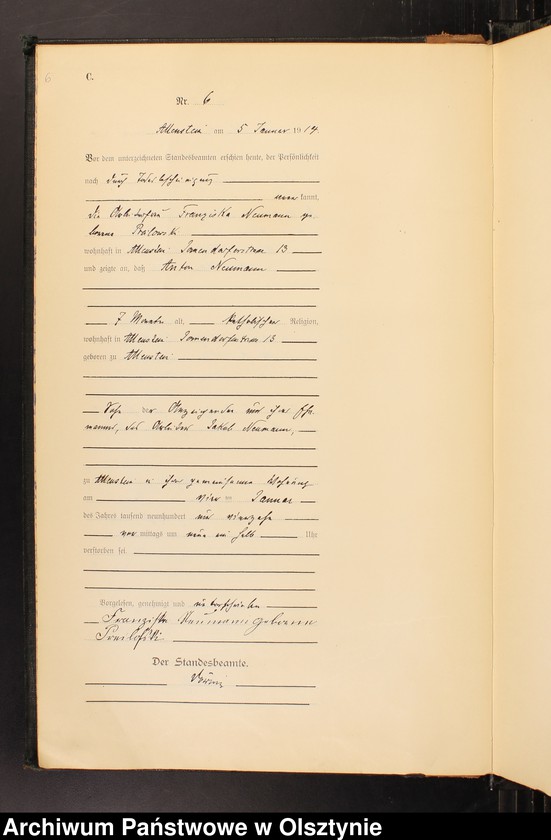 6
C.
Nr. 6
Allenstein am 5 Januar 1914.
Vor dem unterzeichneten Standesbeamten erschien heute, der Persönlichkeit
nach durch
kannt,
die Franziska Neumann ge-
borene
wohnhaft in Allenstein 13
und zeigte an, daß Anton Neumann
7 Monate alt, katholischer Religion,
wohnhaft in Allenstein 13
geboren zu Allenstein
Sohn der Anzeigenden und ihres Ehe-
mannes, des Jakob Neumann,
zu Allenstein in ihrer gemeinsamen Wohnung
am vier ten Januar
des Jahres tausend neunhundert und vierzehn
vor mittags um neun ein halb Uhr
verstorben sei.
Vorgelesen, genehmigt und unterschrieben
Franziska Neumann geborene
Der Standesbeamte.
Archiwum Państwowe w Olsztynie